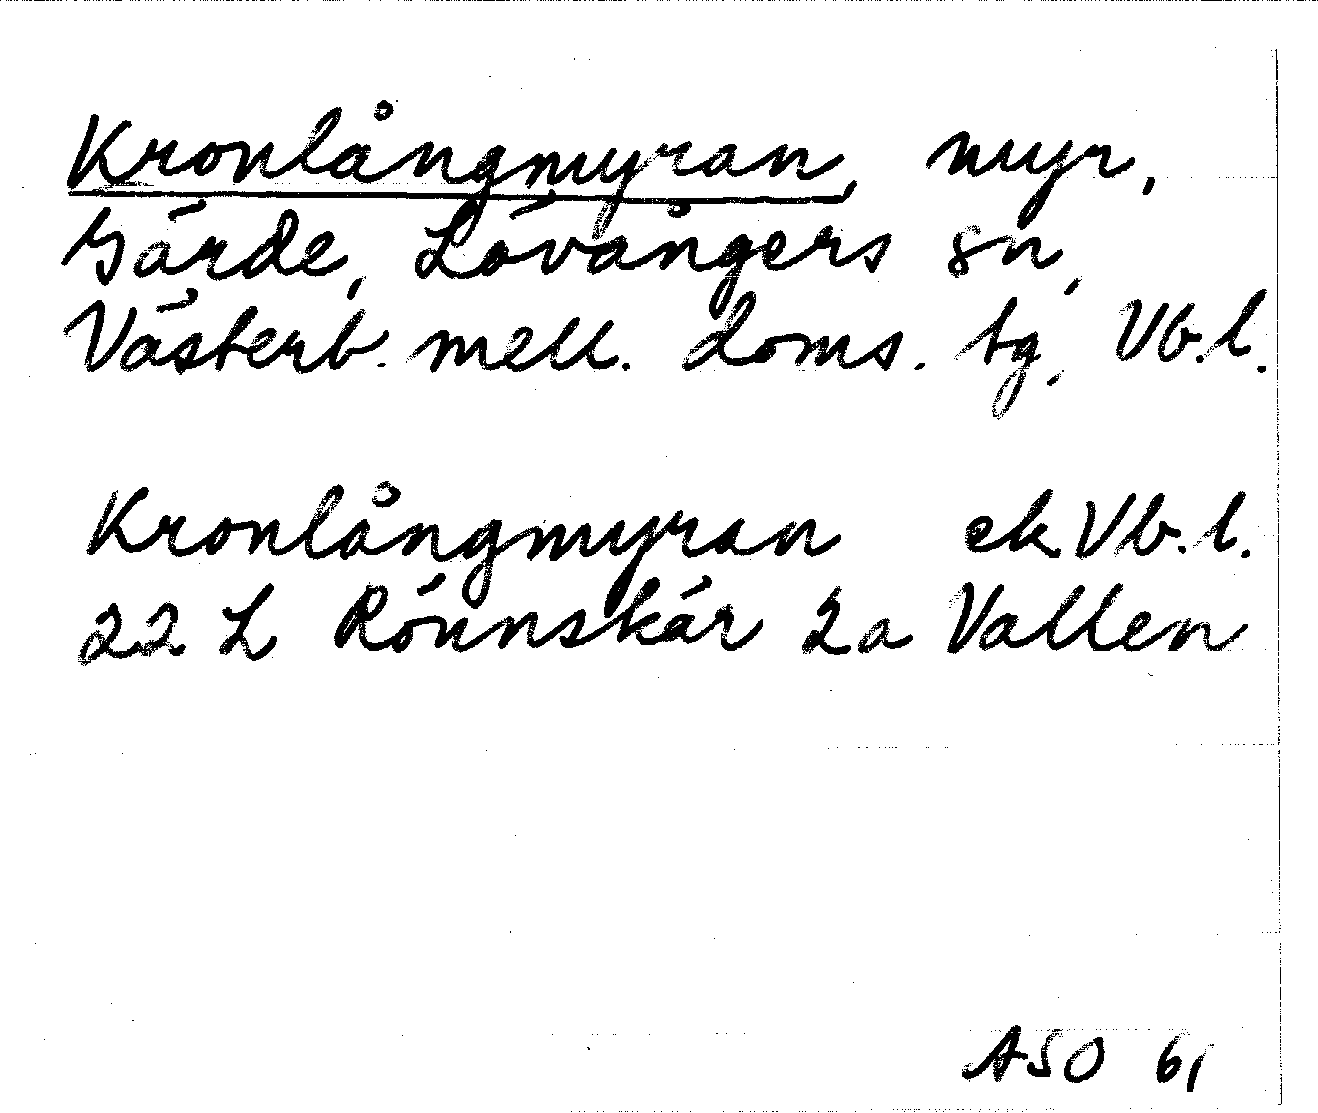 Kronlångmyran, myr,
Gärde, Lövångers sn,
Västerb. mell. doms. tg, Vb.l.
Kronlångmyran ek. Vb.l.
22 L Rönnskär 2a Vallen
ASO 61